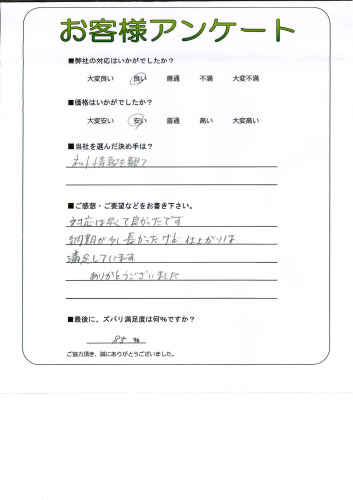 お客様アンケート
■弊社の対応はいかがでしたか？
大変良い 良い 普通 不満 大変不満
■価格はいかがでしたか？
大変安い 安い 普通 高い 大変高い
■当社を選んだ決め手は？
ネット情報を観て
■ご感想・ご要望などをお書き下さい。
対応は早くて良かったです
納期が少し長かったけど 仕上がりは
満足しています
ありがとうございました
■最後に、ズバリ満足度は何%ですか？
85 %
ご協力頂き、誠にありがとうございました。